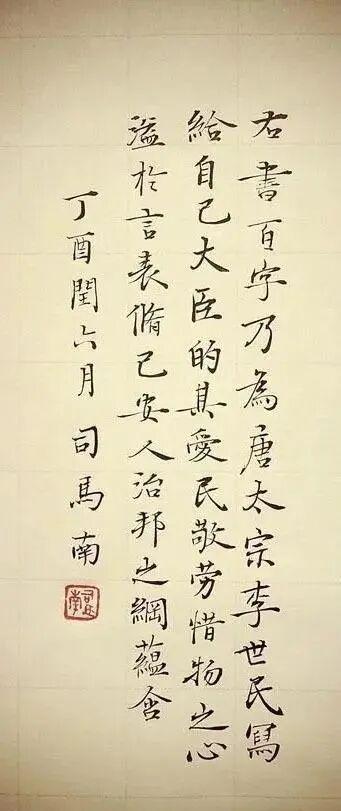 右書百字乃為唐太宗李世民寫
給自己大臣的其愛民敬勞惜物之心
溢於言表脩己安人治邦之綱蘊含
丁酉閏六月司馬南